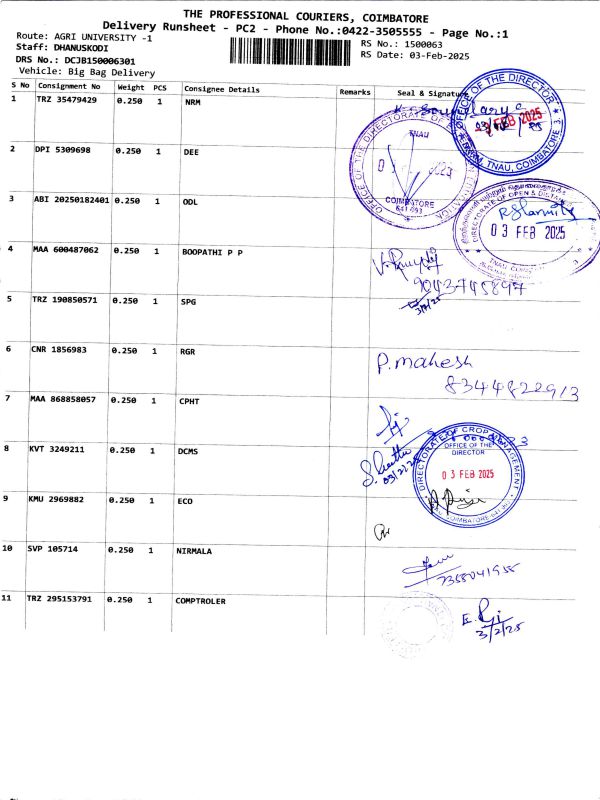 THE PROFESSIONAL COURIERS, COIMBATORE
Delivery Runsheet - PC2 - Phone No.:0422-3505555 - Page No.:1
Route: AGRI UNIVERSITY -1
RS No.: 1500063
Staff: DHANUSKODI
RS Date: 03-Feb-2025
DRS No.: DCJB150006301
Vehicle: Big Bag Delivery
S No Consignment No Weight PCS Consignee Details Remarks Seal & Signature
1 TRZ 35479429 0.250 1 NRM
OFFICE OF THE DIRECTOR
FEB 2025
NRM, TNAU, COIMBATORE
OFFICE OF THE DIRECTORATE OF
TNAU
2 DPI 5309698 0.250 1 DEE
COIMBATORE
641 003
3 ABI 20250182401 0.250 1 ODL
DIRECTORATE OF OPEN &
R Sharmila
03 FEB 2025
4 MAA 600487062 0.250 1 BOOPATHI P P
9043745897
3/2/25
5 TRZ 190850571 0.250 1 SPG
6 CNR 1856983 0.250 1 RGR
P. Mahesh
8344822913
7 MAA 868858057 0.250 1 CPHT
8 KVT 3249211 0.250 1 DCMS
03/2/25
DIRECTORATE OF CROP MANAGEMENT
OFFICE OF THE
DIRECTOR
03 FEB 2025
COIMBATORE-641 003
9 KMU 2969882 0.250 1 ECO
10 SVP 105714 0.250 1 NIRMALA
7358041955
11 TRZ 295153791 0.250 1 COMPTROLER
3/2/25